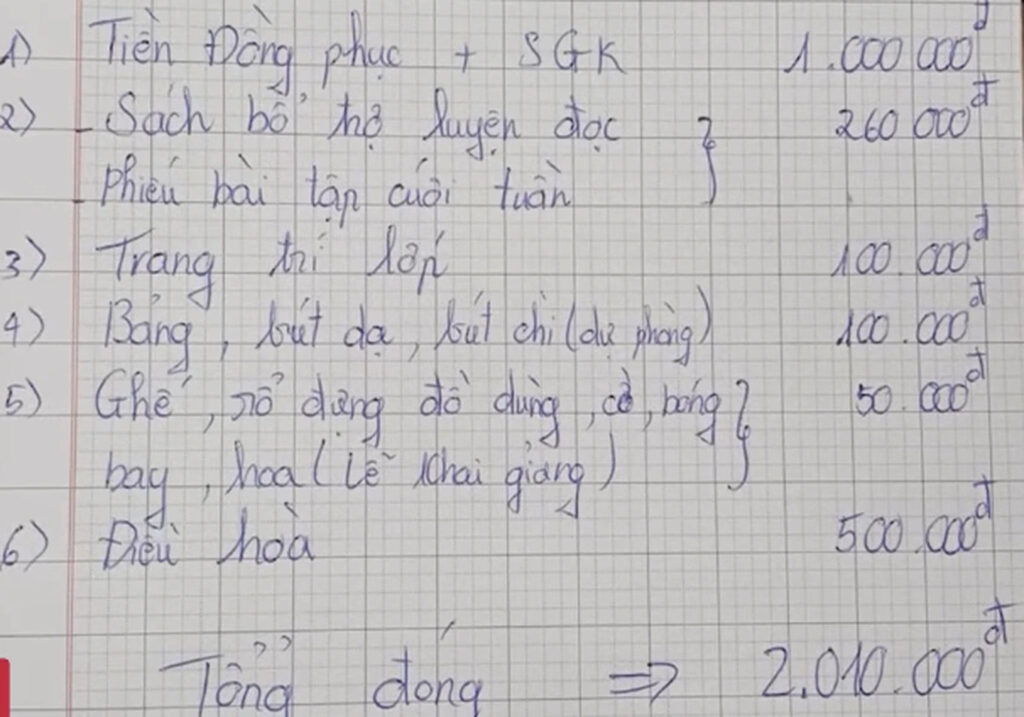 1) Tiền Đồng phục + SGK 1.000 000đ
2) - Sách bổ trợ luyện đọc 260 000đ
- Phiếu bài tập cuối tuần
3) Trang trí lớp 100.000đ
4) Bảng, bút dạ, bút chì (dự phòng) 100.000đ
5) Ghế, rổ đựng đồ dùng, cờ, bóng 50.000đ
bay, hoa (Lễ khai giảng)
6) Điều hoà 500.000đ
Tổng đóng ⇒ 2.010.000đ